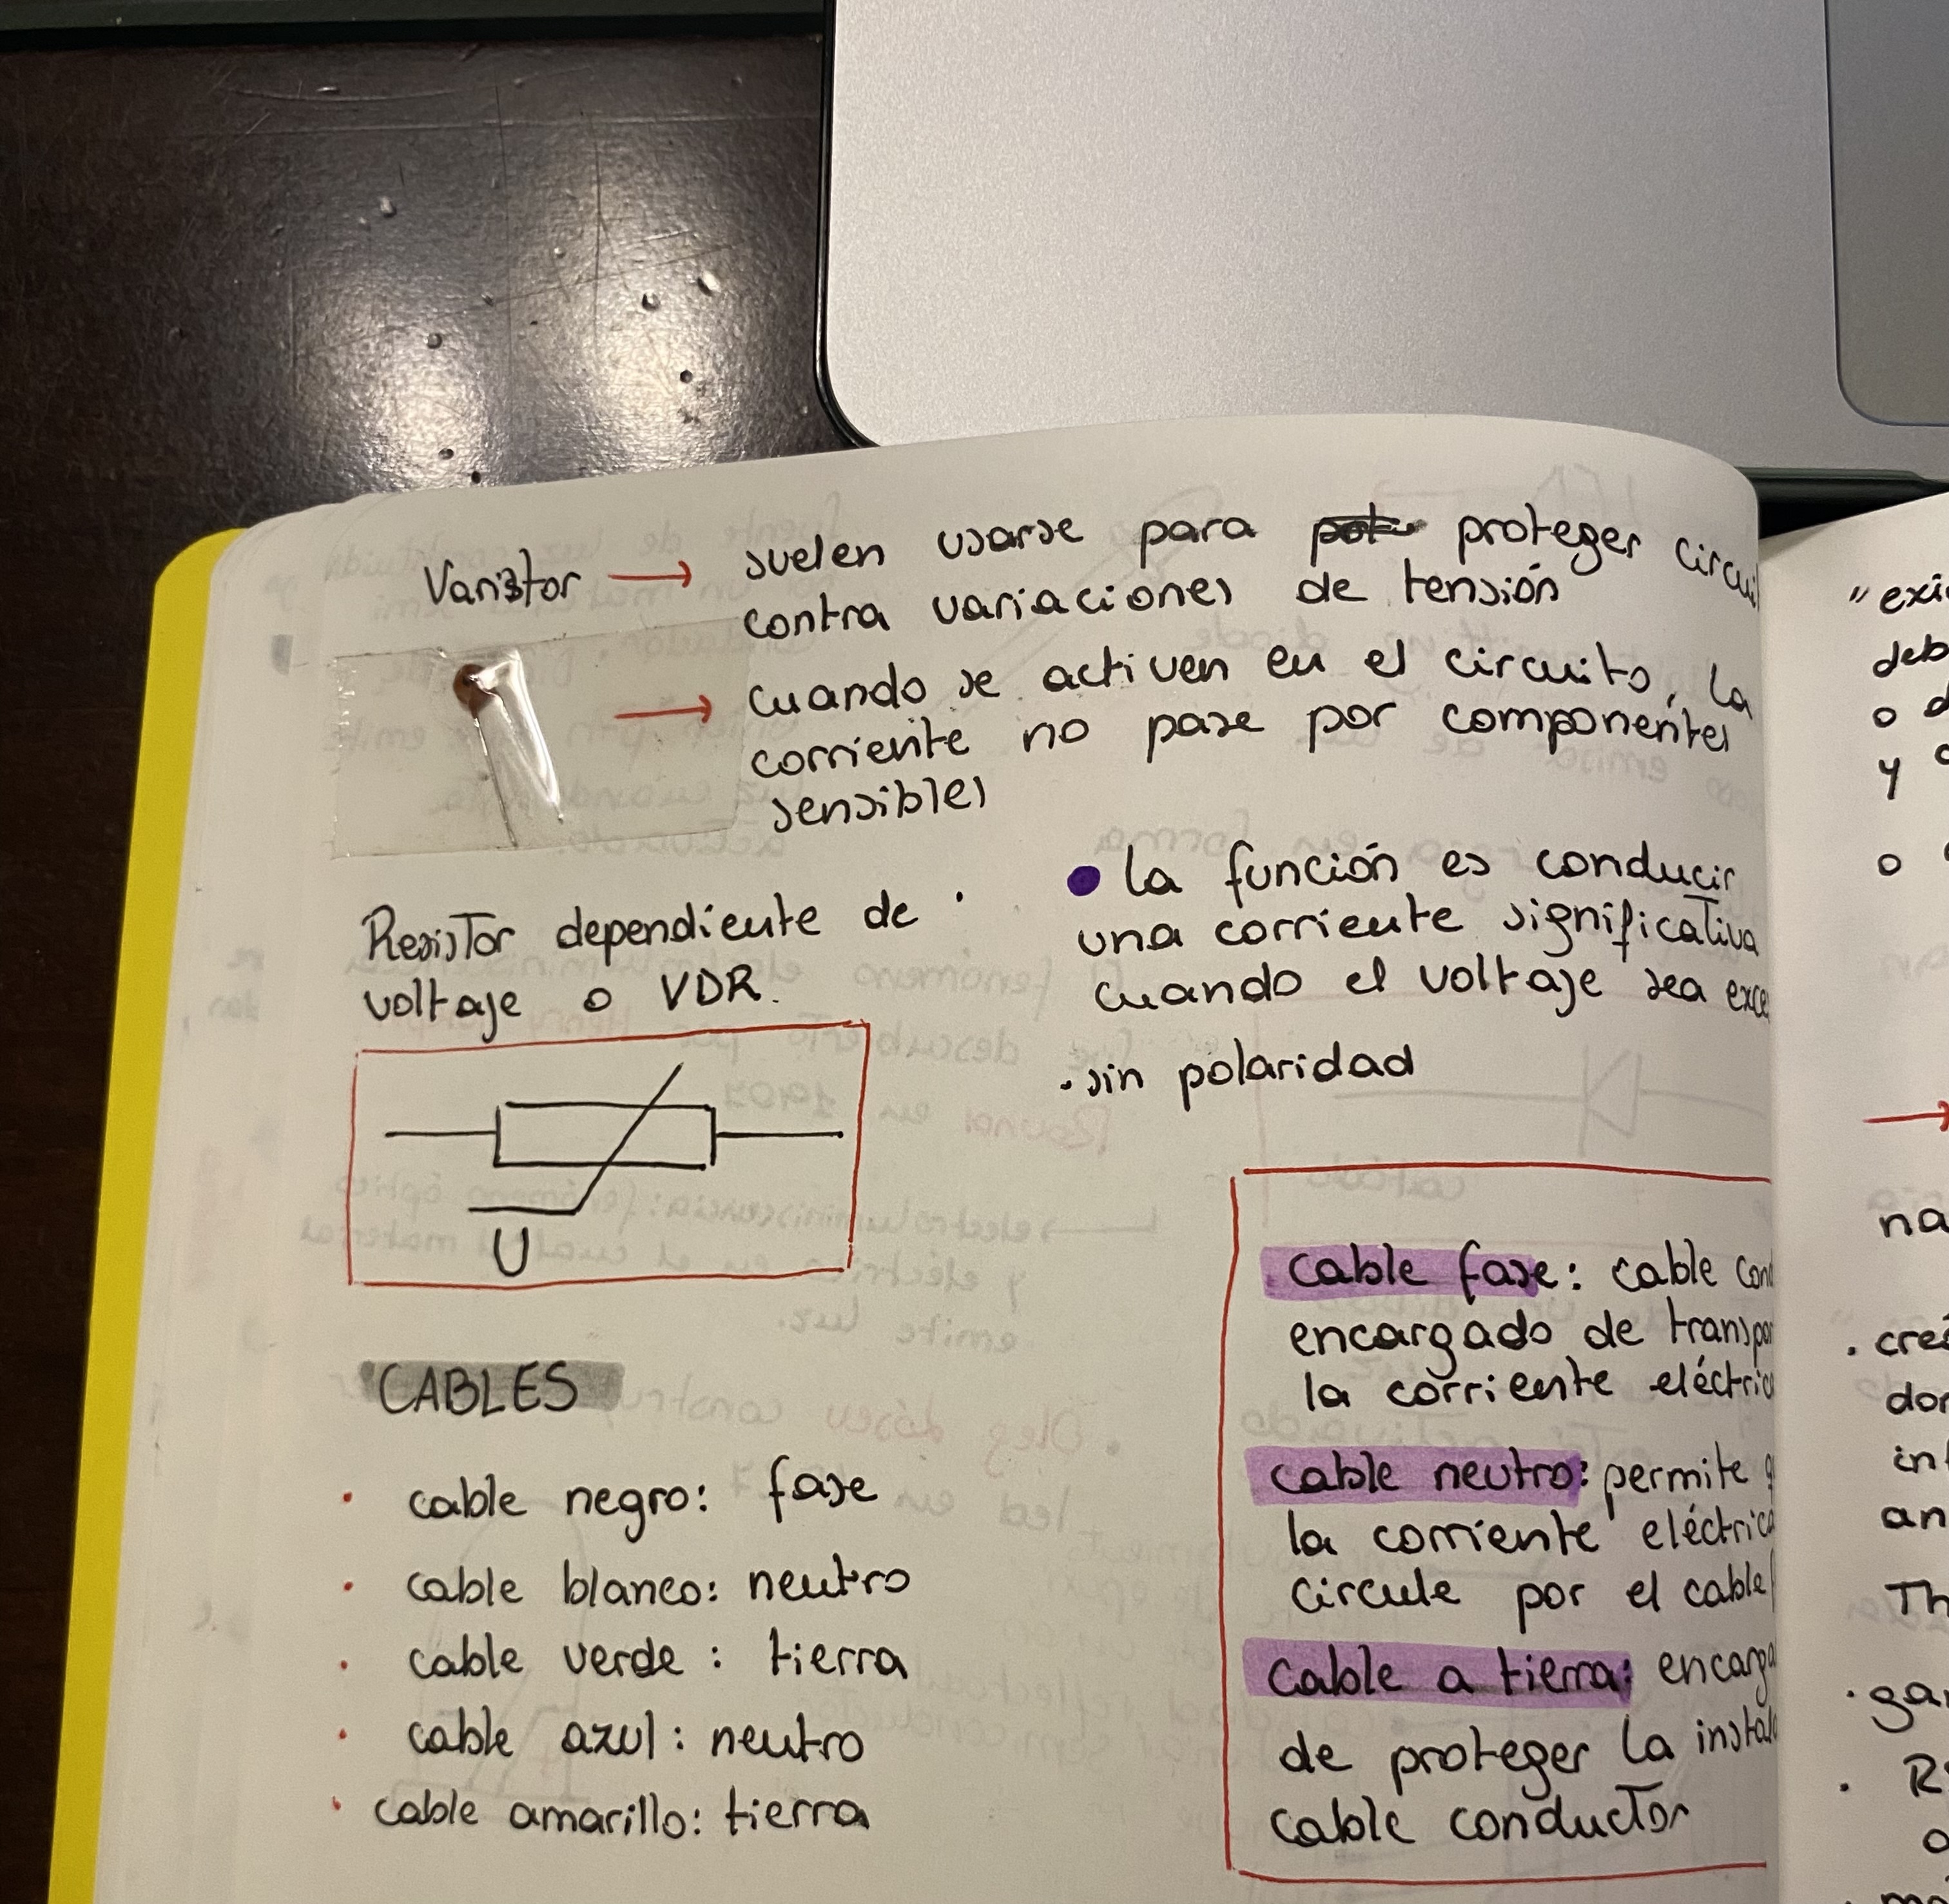 Varistor → suelen usarse para proteger
contra variaciones de tensión
→ cuando se activen en el circuito, la
corriente no pase por componentes
sensibles
Resistor dependiente de
voltaje o VDR.
U
• la función es conducir
una corriente significativa
cuando el voltaje sea
• sin polaridad
CABLES
• cable negro: fase
• cable blanco: neutro
• cable verde: tierra
• cable azul: neutro
• cable amarillo: tierra
cable fase: cable
encargado de
la corriente
cable neutro: permite
la corriente
circule por el cable
cable a tierra:
de proteger la
cable conductor
o
y
o